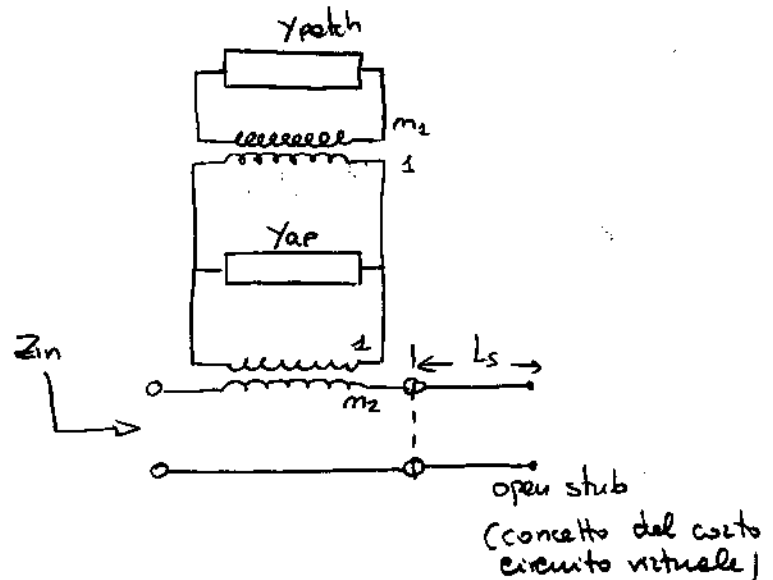 Ypatch
m1
1
Yap
1
Zin
Ls
m2
open stub
(concetto del corto
circuito virtuale)